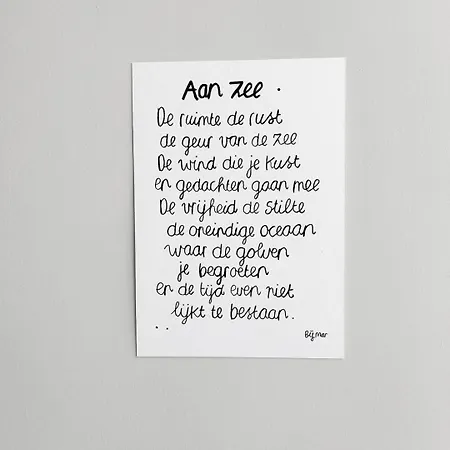 Aan Zee .
De ruimte de rust
de geur van de zee
De wind die je kust
en gedachten gaan mee
De vrijheid de stilte
de oneindige oceaan
waar de golven
je begroeten
en de tijd even niet
lijkt te bestaan.
. .
Bijmar